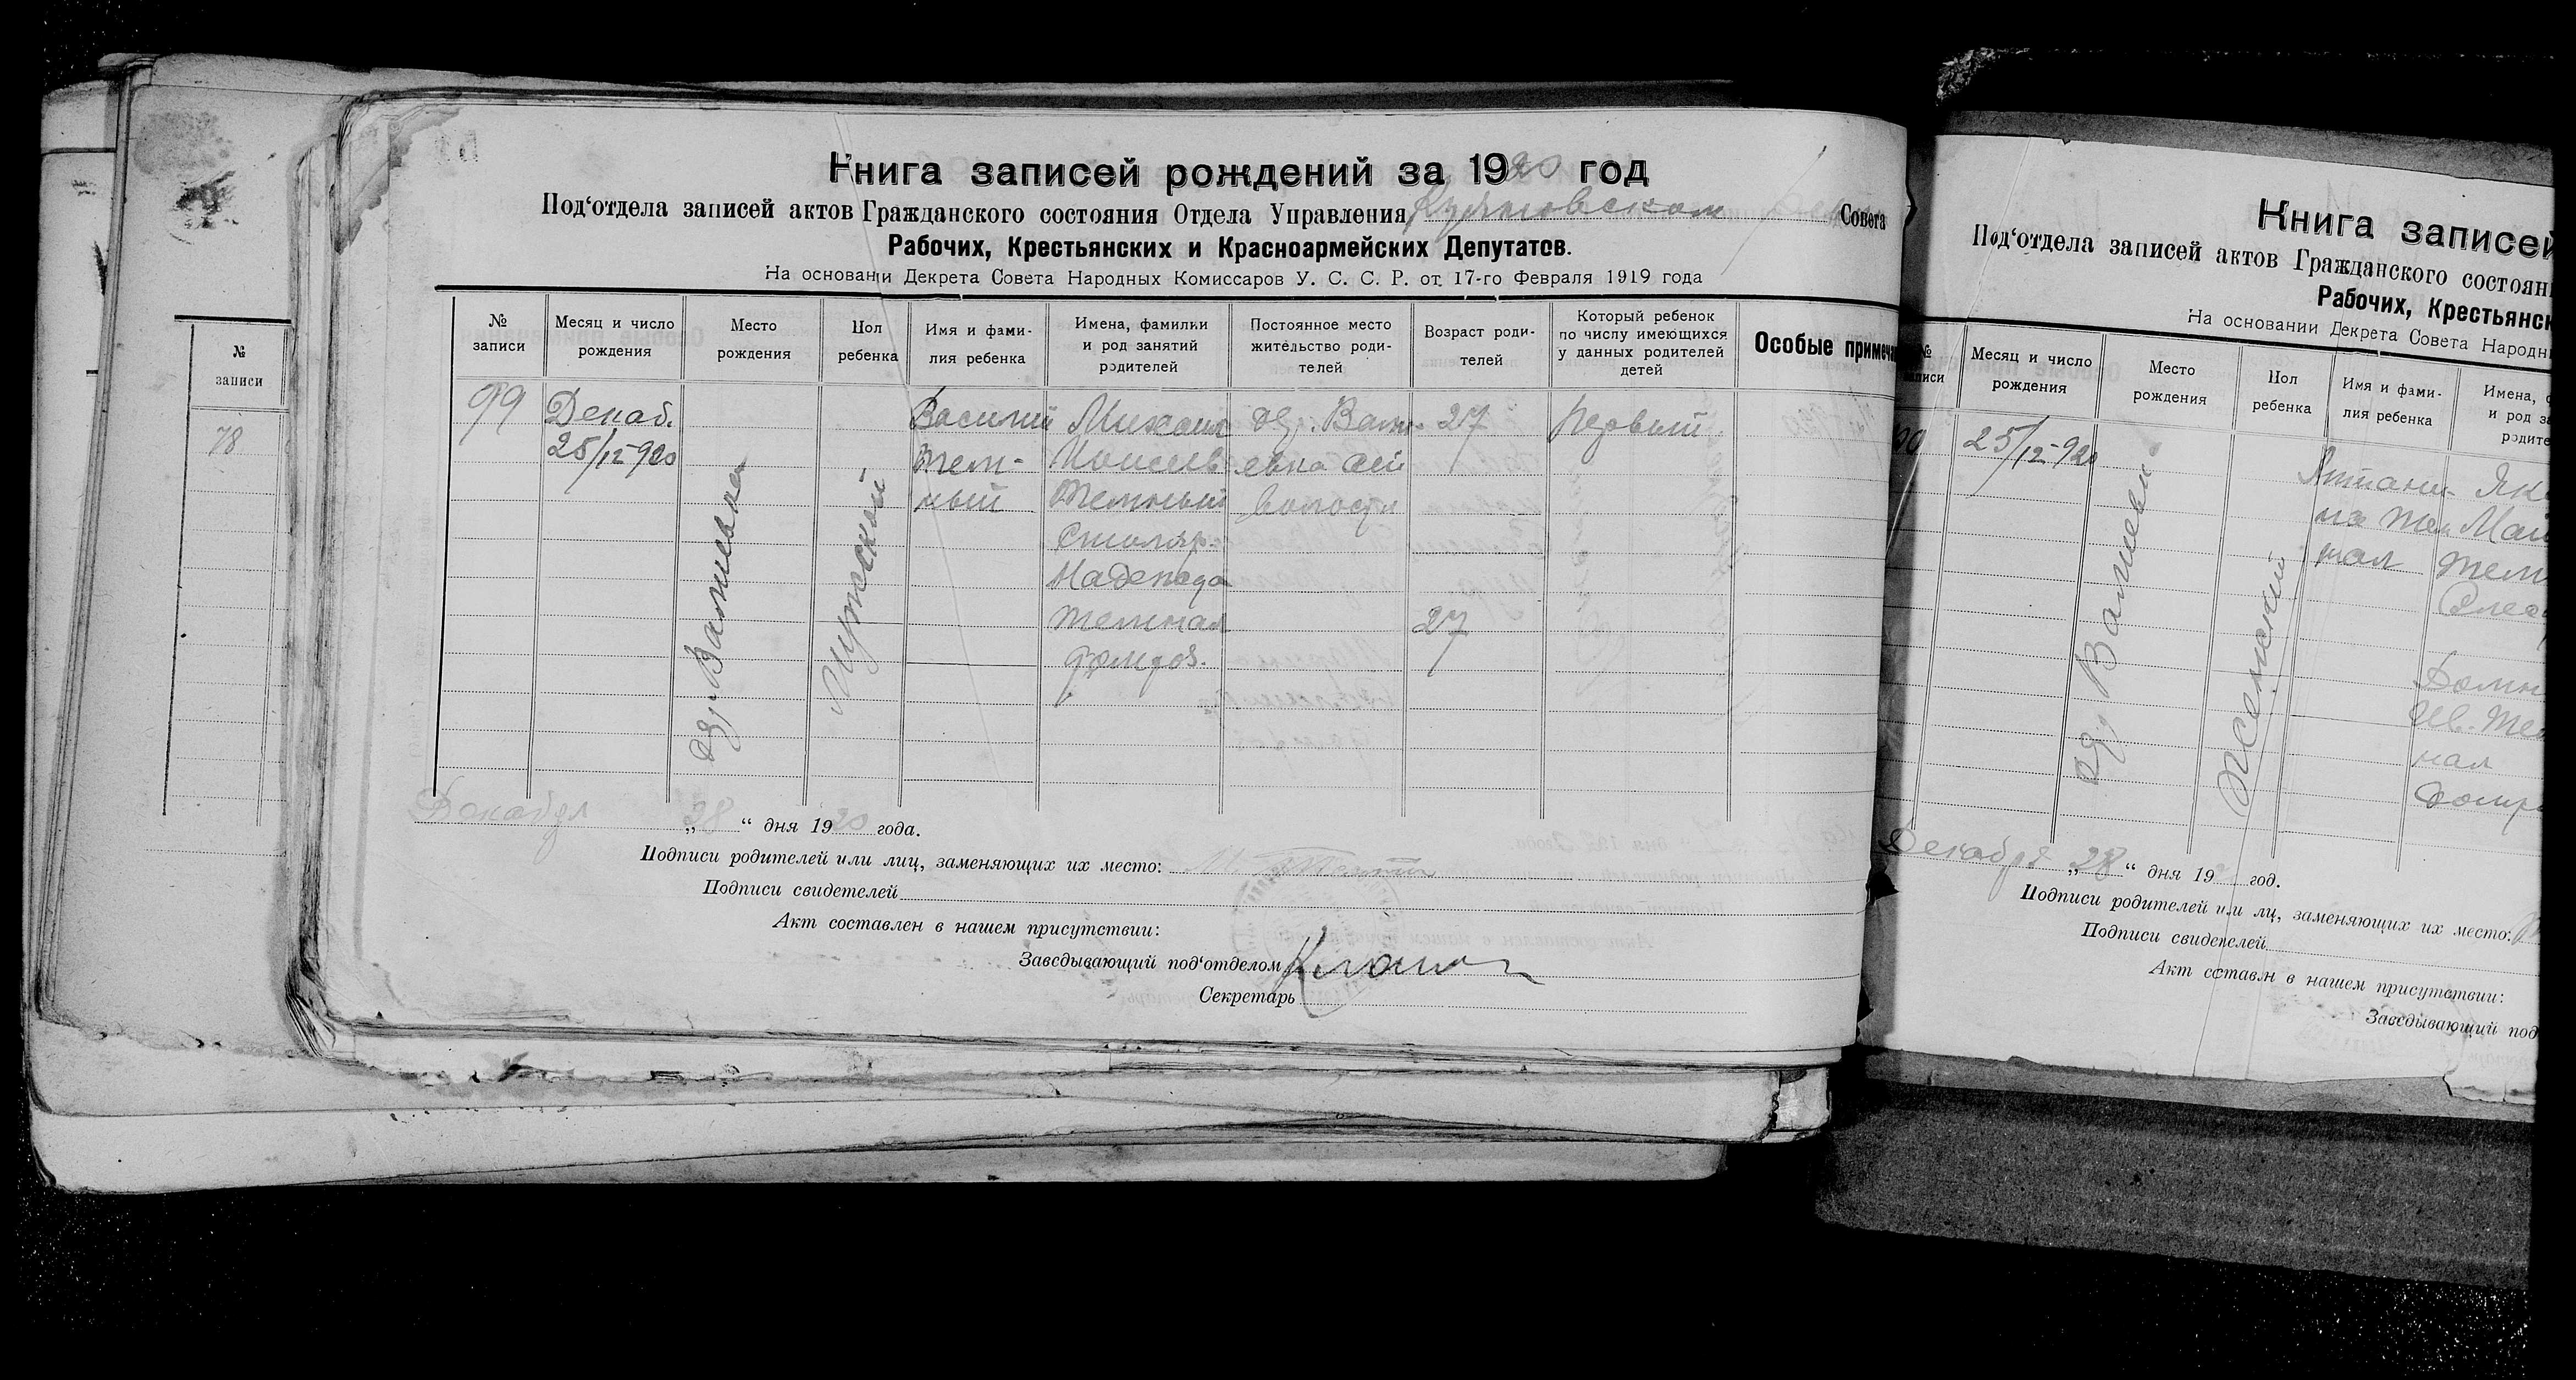 Книга записей рождений за 1920 год
Под'отдела записей актов Гражданского состояния Отдела Управления Совета
Рабочих, Крестьянских и Красноармейских Депутатов.
На основании Декрета Совета Народных Комиссаров У. С. С. Р. от 17-го Февраля 1919 года
№ записи
Месяц и число рождения
Место рождения
Пол ребенка
Имя и фами-
лия ребенка
Имена, фамилии
и род занятий
родителей
Постоянное место
жительство роди-
телей
Возраст роди-
телей
Который ребенок
по числу имеющихся
у данных родителей
детей
Особые примеча
99
Декаб.
25/12-920
дер. Валиевка
Мужской
Василий
Тем-
ный
Михаил
Темный
Столяр.
Надежда
Темная
домхоз.
дер. Вали-
евка сей
волости
27
27
Первый
Декабря „28“ дня 1920 года.
Подписи родителей или лиц, заменяющих их место:
Подписи свидетелей
Акт составлен в нашем присутствии:
Заведывающий под'отделом
Секретарь
№
записи
78
Книга записей
Под'отдела записей актов Гражданского состоян
Рабочих, Крестьянск
На основании Декрета Совета Народн
№
писи
Месяц и число
рождения
Место
рождения
Пол
ребенка
Имя и фами-
лия ребенка
Имена,
и род за
родите
00
25/12-920
дер. Валиевка
Женский
Тем
ная
Як
Тем
Домн
Ив. Тем
ная
Декабря „28“ дня 19 год.
Подписи родителей или лц, заменяющих их место:
Подписи свидетелей
Акт сставлн в нашем присутствии:
Заведывающий под